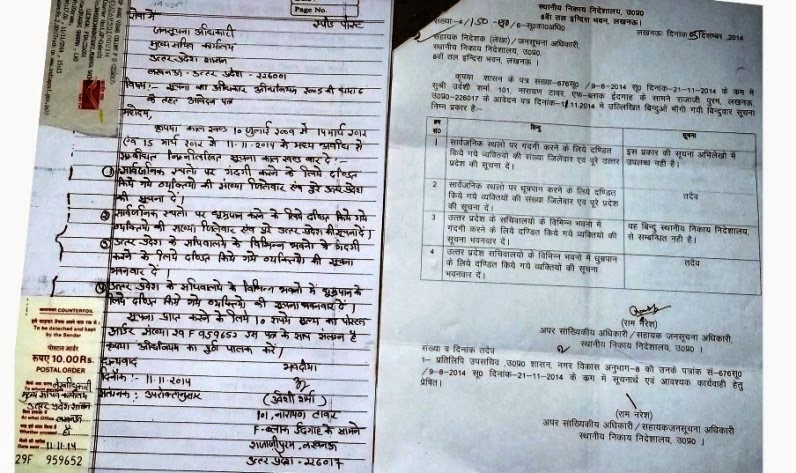 Page No.
स्पीड पोस्ट
सेवा में
जनसूचना अधिकारी
मुख्य सचिव कार्यालय
उत्तर प्रदेश शासन
लखनऊ - उत्तर प्रदेश - 226001
विषय:- सूचना का अधिकार अधिनियम 2005 की धारा 6
के तहत आवेदन पत्र
महोदय,
कृपया काल खण्ड 10 जुलाई 2009 से 14 मार्च 2012
एवं 15 मार्च 2012 से 11-11-2014 के मध्य अवधि से
सम्बंधित निम्नलिखित सूचना काल खण्ड वार दें :-
① सार्वजनिक स्थलों पर गंदगी करने के लिये दण्डित
किये गये व्यक्तियों की संख्या जिलेवार एवं पूरे उत्तर प्रदेश
की सूचना दें।
② सार्वजनिक स्थलों पर धूम्रपान करने के लिये दण्डित किये गये
व्यक्तियों की संख्या जिलेवार एवं पूरे उत्तर प्रदेश की सूचना दें।
③ उत्तर प्रदेश के सचिवालय के विभिन्न भवनों में गंदगी
करने के लिये दण्डित किये गये व्यक्तियों की सूचना
भवनवार दें।
④ उत्तर प्रदेश के सचिवालय के विभिन्न भवनों में धूम्रपान के
लिये दण्डित किये गये व्यक्तियों की सूचना भवनवार दें।
सूचना प्राप्त करने के लिये 10 रुपये मूल्य का पोस्टल
आर्डर संख्या 29F 959652 इस पत्र के साथ संलग्न है
कृपया अधिनियम का पूर्ण पालन करें।
धन्यवाद
भवदीया
दिनांक:- 11-11-2014
स्थान:- उपरोक्तानुसार
(उर्वशी शर्मा)
101, नारायण टावर
F-ब्लाक ईदगाह के सामने
राजाजीपुरम, लखनऊ
उत्तर प्रदेश - 226017
COUNTERFOIL
To be detached and kept
by the Sender
पोस्टल आर्डर
रुपए 10.00Rs.
POSTAL ORDER
जनसूचना अधिकारी
मुख्य सचिव कार्यालय
उत्तर प्रदेश शासन
At what Office
लखनऊ
Date sent
11-11-14
29F 959652
स्थानीय निकाय निदेशालय, उ0प्र0
8वां तल इन्दिरा भवन, लखनऊ।
लखनऊः दिनांक 05 दिसम्बर, 2014
सहायक निदेशक (लेखा) / जनसूचना अधिकारी,
स्थानीय निकाय निदेशालय, उ0प्र0,
8वां तल इन्दिरा भवन, लखनऊ।
कृपया शासन के पत्र संख्या-676सू0 / 9-8-2014 सू0 दिनांक-21-11-2014 के क्रम में
सुश्री उर्वशी शर्मा, 101, नारायण टावर, एफ-ब्लाक ईदगाह के सामने राजाजी पुरम, लखनऊ,
उ0प्र0-226017 के आवेदन पत्र दिनांक-11.11.2014 में उल्लिखित बिन्दुओं मांगी गयी बिन्दुवार सूचना
निम्न प्रकार है:-
क्र0 सं0 बिन्दु सूचना
1 सार्वजनिक स्थलों पर गंदगी करने के लिये दण्डित
किये गये व्यक्तियों की संख्या जिलेवार एवं पूरे उत्तर
प्रदेश की सूचना दें।
इस प्रकार की सूचना अभिलेखों में
उपलब्ध नहीं है।
2 सार्वजनिक स्थलो पर धूम्रपान करने के लिये दण्डित
किये गये व्यक्तियों की संख्या जिलेवार एवं पूरे उत्तर
प्रदेश की सूचना दें।
तदैव
3 उत्तर प्रदेश के सचिवालय के विभिन्न भवनो में गंदगी
करने के लिये दण्डित किये गये व्यक्तियों की सूचना
भवनवार दें।
यह बिन्दु स्थानीय निकाय निदेशालय,
से सम्बन्धित नही है।
4 उत्तर प्रदेश सचिवालय के विभिन्न भवनों में धुम्रपान
के लिये दण्डित किये गये व्यक्तियों की सूचना
भवनवार दें।
तदैव
(राम नरेश)
अपर सांख्यिकीय अधिकारी / सहायक जनसूचना अधिकारी,
स्थानीय निकाय निदेशालय, उ0प्र0।
संख्या व दिनांक तदैव
1- प्रतिलिपि उपसचिव, उ0प्र0 शासन, नगर विकास अनुभाग-8 को उनके पत्रांक सं-676सू0
/ 9-8-2014 सू0 दिनांक-21-11-2014 के क्रम मे सूचनार्थ एवं आवश्यक कार्यवाही हेतु
प्रेषित।
(राम नरेश)
अपर सांख्यिकीय अधिकारी / सहायकजनसूचना अधिकारी,
स्थानीय निकाय निदेशालय, उ0प्र0।